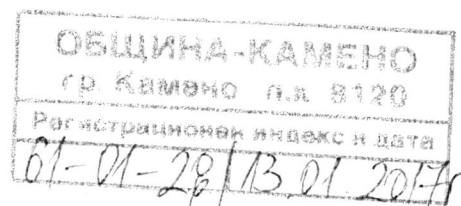 ОБЩИНА-КАМЕНО
гр. Камено п.к. 8120
Регистрационен индекс и дата
01-01-28/13.01.2017г